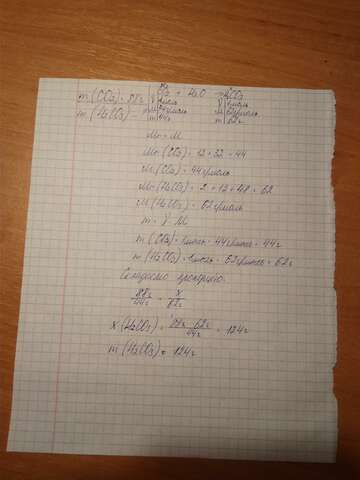 88г
m(CO₂) = 88г CO₂ + H₂O → H₂CO₃
m(H₂CO₃) -
ν 1моль ν 1моль
M 44г/моль M 62г/моль
m 44г m 62г
Mr = M
Mr (CO₂) = 12 + 32 = 44
M (CO₂) = 44г/моль
Mr (H₂CO₃) = 2 + 12 + 48 = 62
M (H₂CO₃) = 62г/моль
m = ν · M
m (CO₂) = 1моль · 44г/моль = 44г
m (H₂CO₃) = 1моль · 62г/моль = 62г
Складаємо пропорцію
88г/44г = x/62г
x (H₂CO₃) = 88г · 62г/44г = 124г
m (H₂CO₃) = 124г